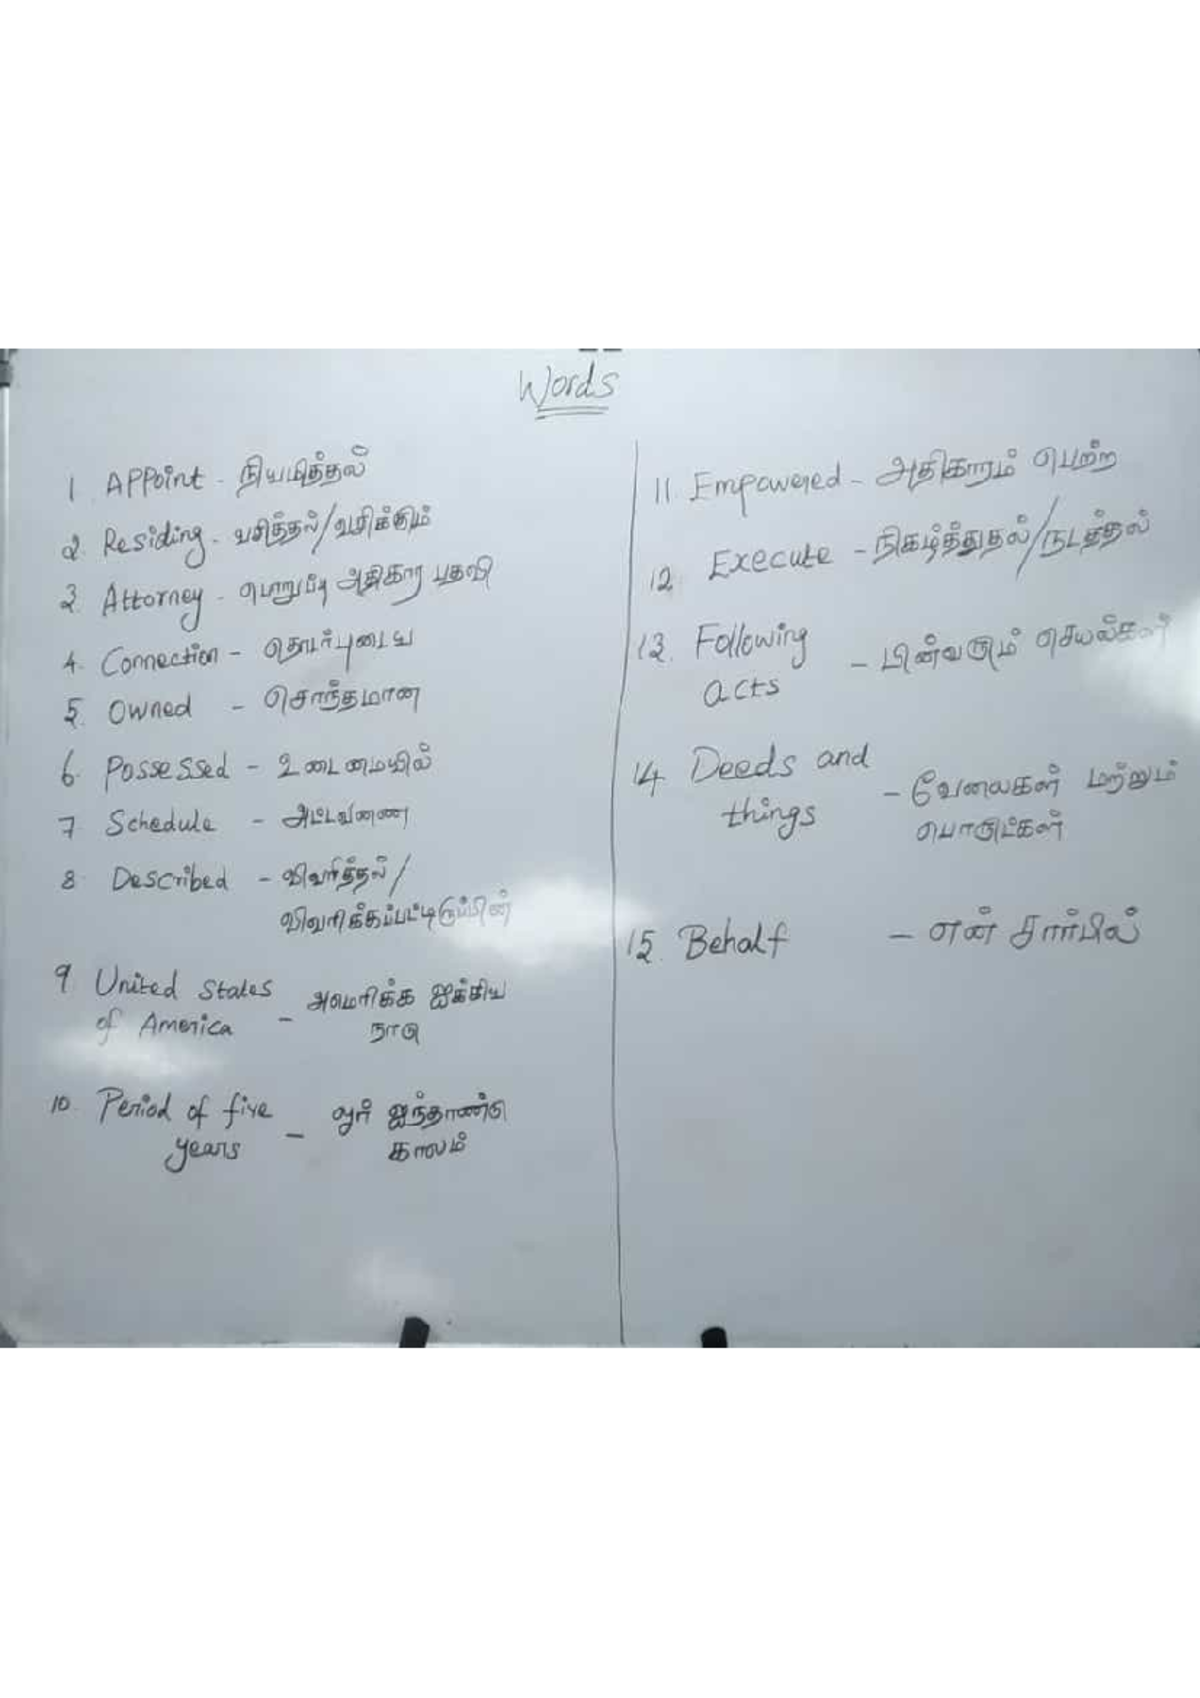 Words
1. APPoint - நியமித்தல்
2. Residing - வசித்தல்/வசிக்கும்
3. Attorney - பொறுப்பு அதிகார பதவி
4. Connection - தொடர்புடைய
5. Owned - சொந்தமான
6. Possessed - உடைமையில்
7 Schedule - அட்டவணை
8. Described - விவரித்தல்/
விவரிக்கப்பட்டிருப்பின்
9. United States - அமெரிக்க ஐக்கிய
of America நாடு
10. Period of five - ஓர் ஐந்தாண்டு
years காலம்
11. Empowered - அதிகாரம் பெற்ற
12. Execute - நிகழ்த்துதல்/நடத்தல்
13. Following - பின்வரும் செயல்கள்
acts
14. Deeds and - வேலைகள் மற்றும்
things பொருட்கள்
15. Behalf - என் சார்பில்